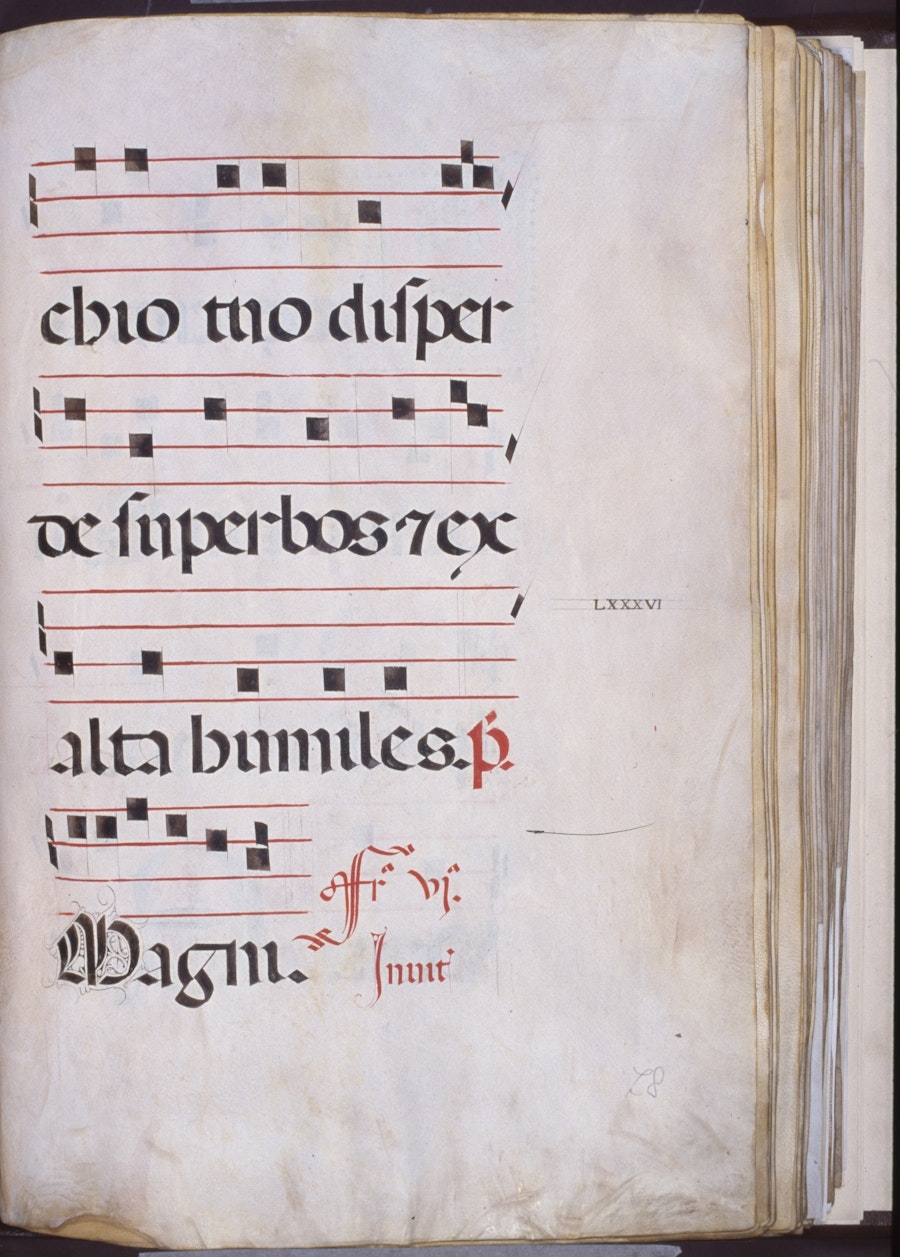 chio tuo disper
de superbos ⁊ ex
LXXXVI
alta humiles. p̄.
Magni. Fr̄ vj.
Inuit
78